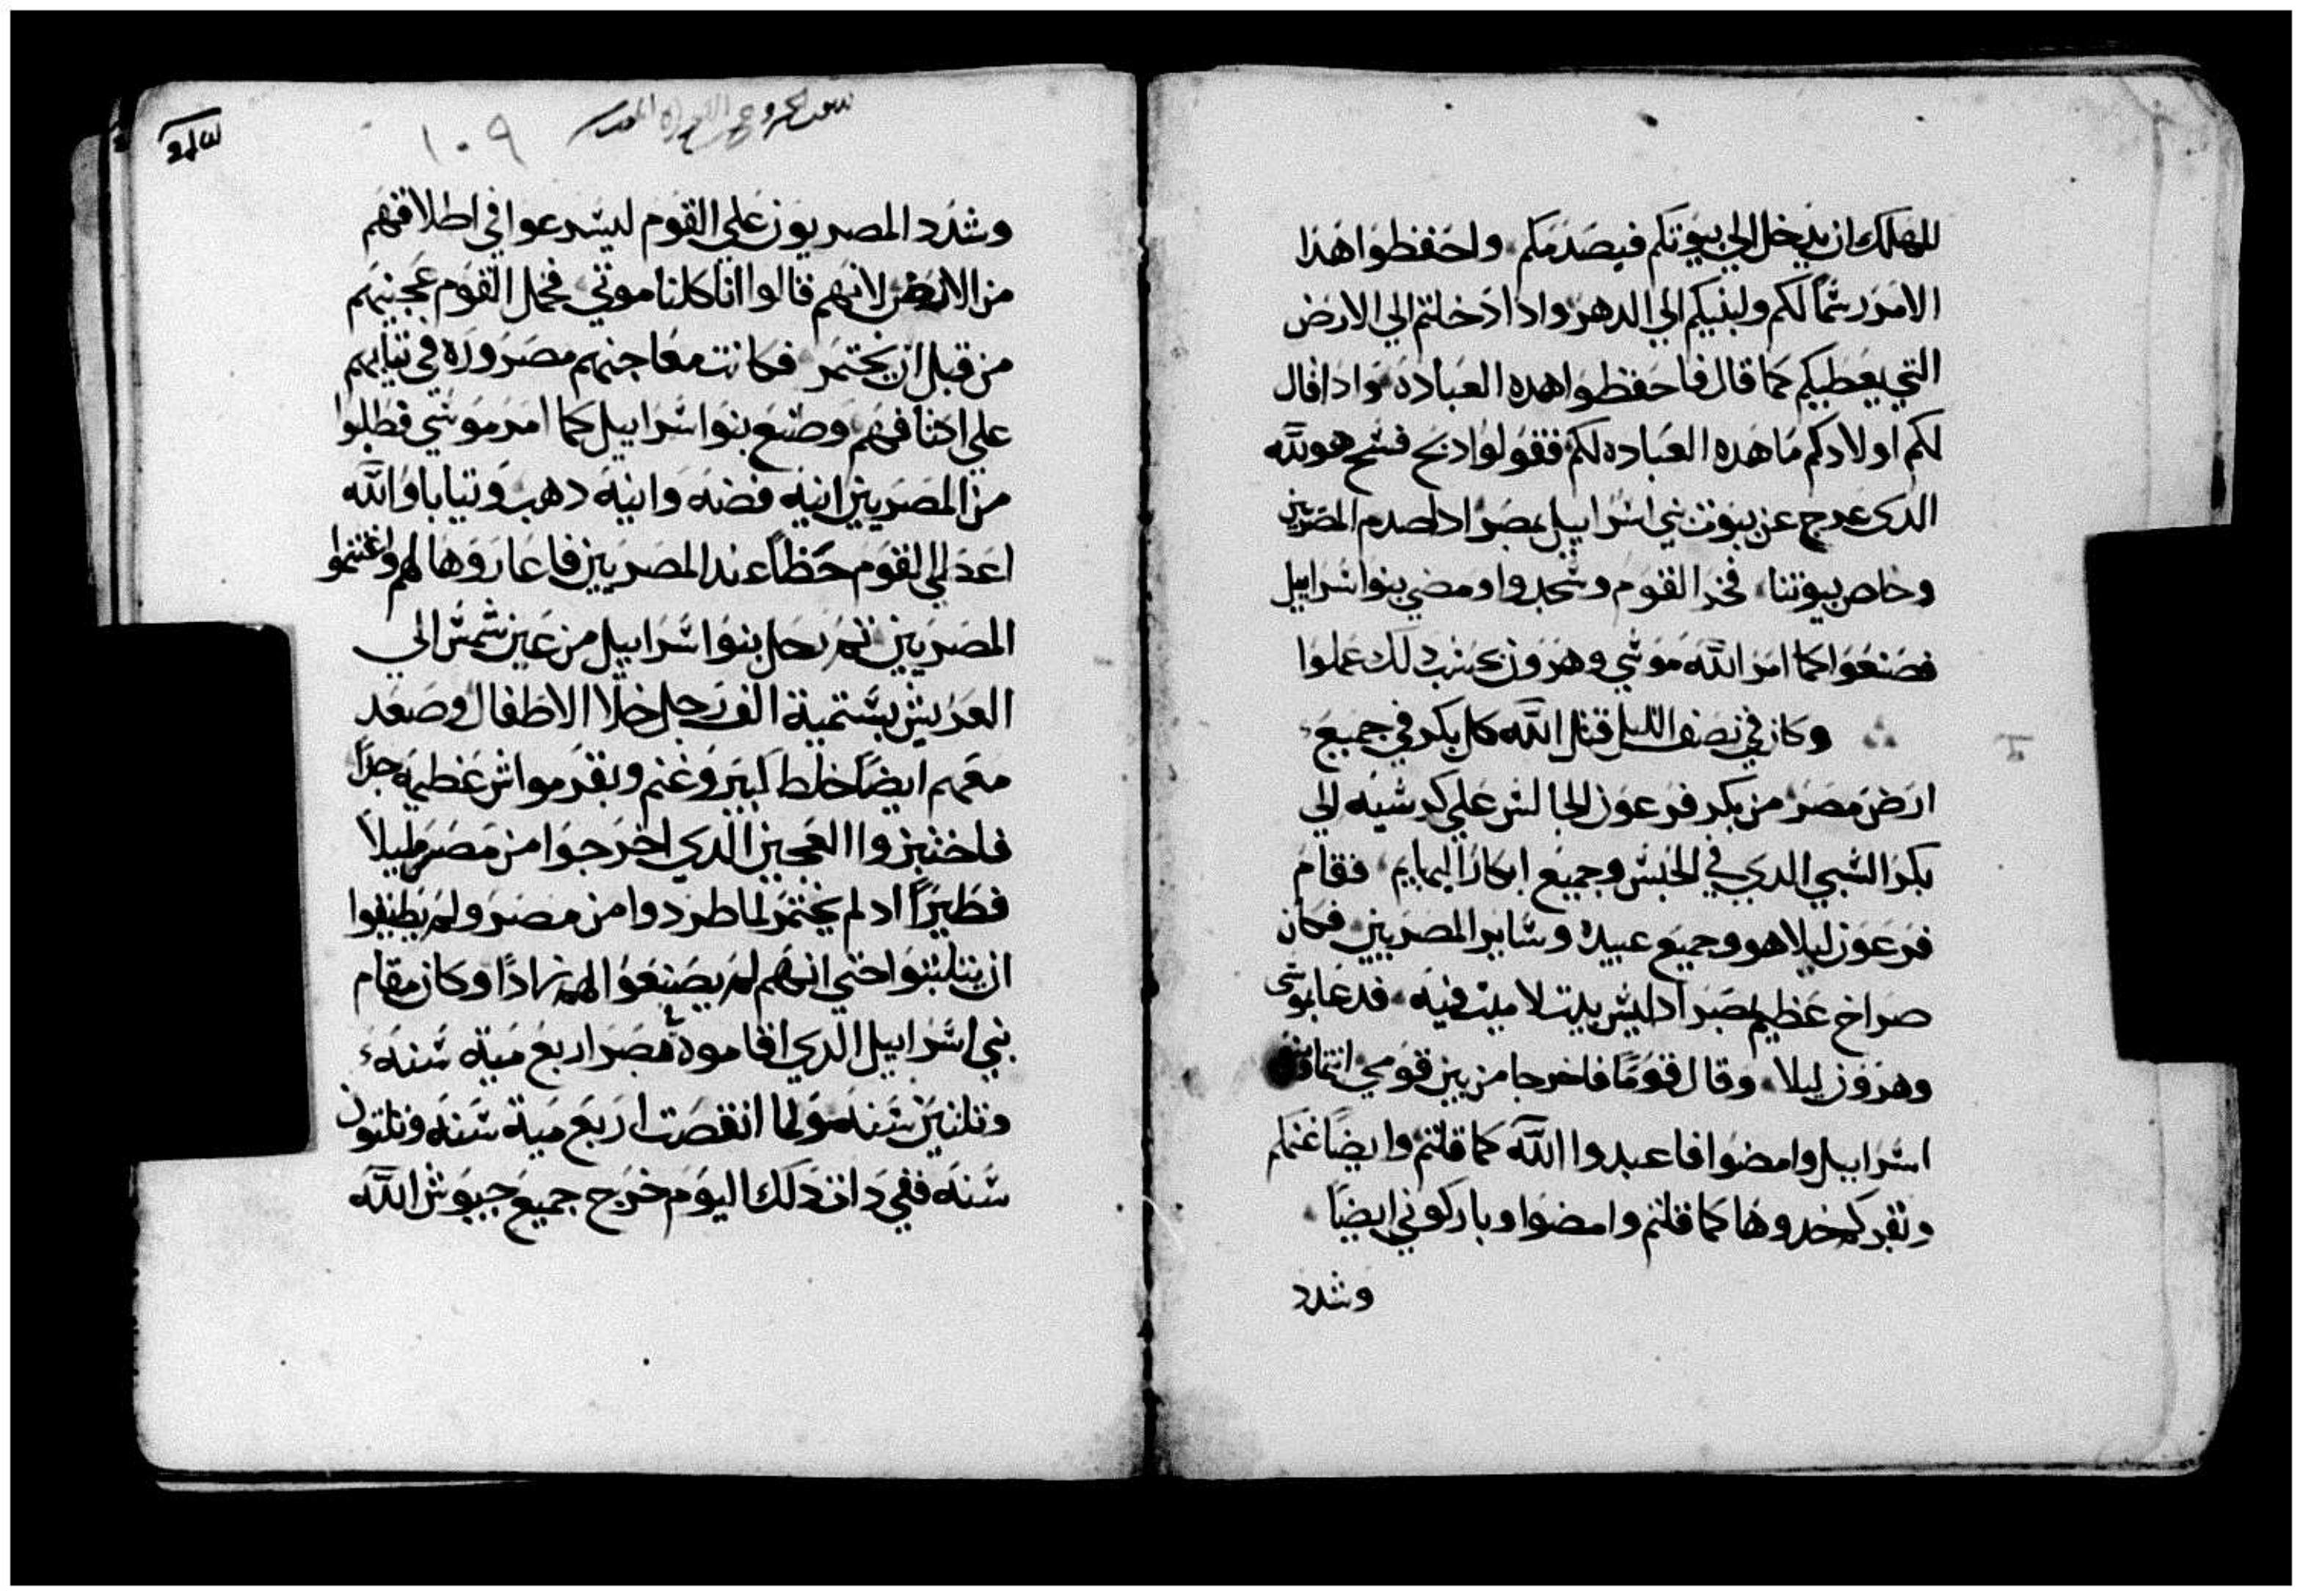 للمهلك ان يدخل الي بيوتكم فيصدمكم واحفظوا هذا
الامر رسما لكم ولبنيكم الي الدهر وادا دخلتم الي الارض
التي يعطيكم كما قال فاحفظوا هده العباده وادا قال
لكم اولادكم ما هده العباده لكم فقولوا دبح فسح هو لله
الدي عرج عن بيوت بني اسراييل بمصر اد صدم المصريين
وخاص بيوتنا فخر القوم وسجدوا ومضي بنوا اسراييل
فصنعوا كما امر الله موسي وهرون كدلك عملوا
وكان في نصف الليل قتل الله كل بكر في جميع
ارض مصر من بكر فرعون الجالس علي كرسيه الي
بكر السبي الدي في الحبس وجميع ابكار البهايم فقام
فرعون ليلا هو وجميع عبيده وساير المصريين فكان
صراخ عظيم بمصر اد ليس بيت لا ميت فيه فدعا بموسي
وهرون ليلا وقال قوما فاخرجا من بين قومي انتما
اسراييل وامضوا فاعبدوا الله كما قلتم وايضا غنمكم
وبقركم خدوها كما قلتم وامضوا وباركوني ايضا
وشدد
١٠٩
وشدد المصريون علي القوم ليسرعوا في اطلاقهم
من الارض لانهم قالوا انا كلنا موتي فحمل القوم عجينهم
من قبل ان يختمر فكانت معاجنهم مصروره في تيابهم
علي اكتافهم وصنع بنوا اسراييل كما امر موسي فطلبوا
من المصريين انيه فضه وانيه دهب وتيابا والله
اعد للقوم حظا عند المصريين فاعاروها لهم واغتنموا
المصريين تم رحل بنوا اسراييل من عين شمس الي
العريش بستمية الف رجل خلا الاطفال وصعد
معهم ايضا خلط كبير وغنم وبقر مواش عظيمه جدا
فاختبزوا العجين الدي اخرجوا من مصر مليلا
فطيرا اد لم يختمر لما طردوا من مصر ولم يطيقوا
ان يتلبتوا حتي انهم لم يصنعوا لهم زادا وكان مقام
بني اسراييل الدي اقاموه بمصر اربع مية سنه
وتلتين سنه ولما انقضت اربع مية سنه وتلتون
سنه ففي دات دلك اليوم خرج جميع جيوش الله